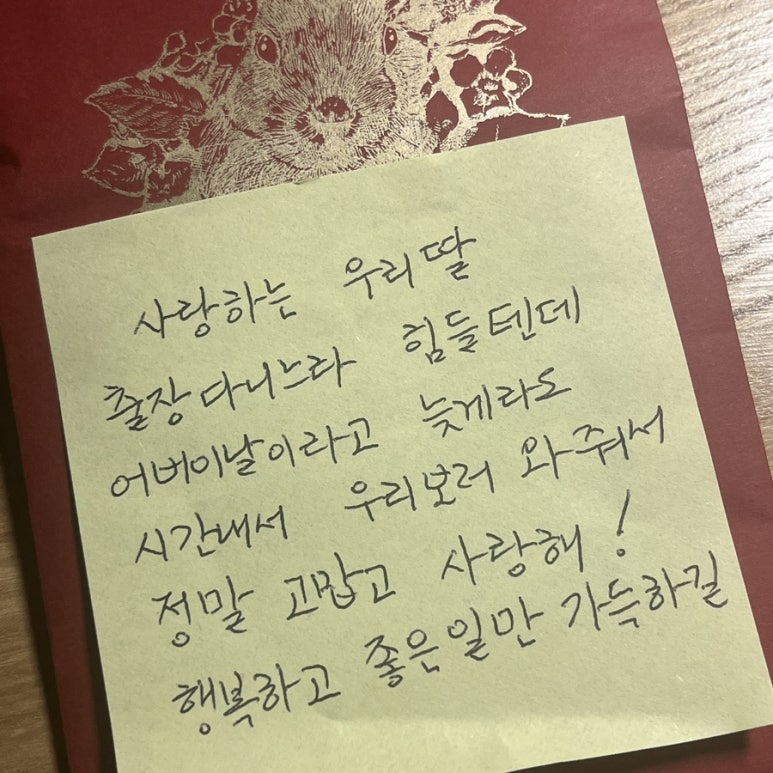 사랑하는 우리딸
출장다니느라 힘들텐데
어버이날이라고 늦게라도
시간내서 우리보러 와줘서
정말 고맙고 사랑해!
행복하고 좋은일만 가득하길